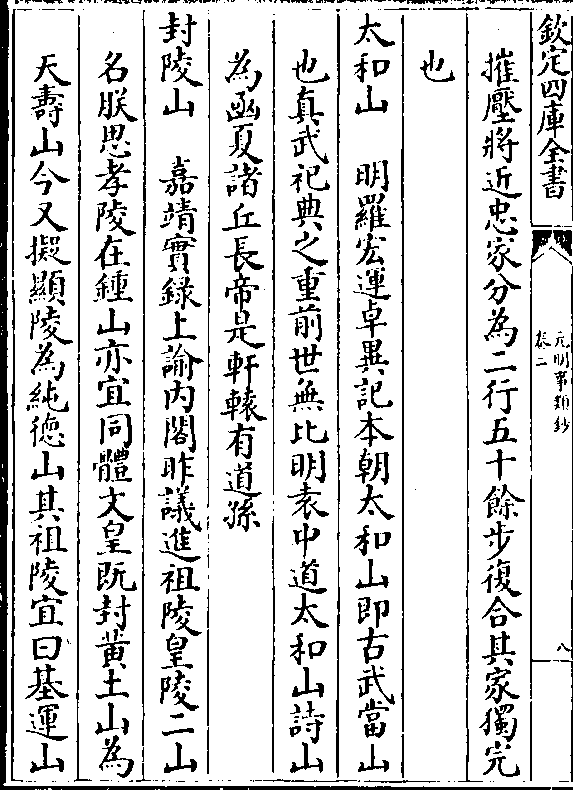 欽定四庫全書
元明事類鈔
卷二
八
摧壓將近忠家分為二行五十餘步復合其家獨完
也
太和山　明羅宏運卓異記本朝太和山即古武當山
也真武祀典之重前世無比明袁中道太和山詩山
為函夏諸丘長帝是軒轅有道孫
封陵山　嘉靖實録上諭内閣昨議進祖陵皇陵二山
名朕思孝陵在鍾山亦宜同體文皇既封黄土山為
天壽山今又擬顯陵為純德山其祖陵宜曰基運山